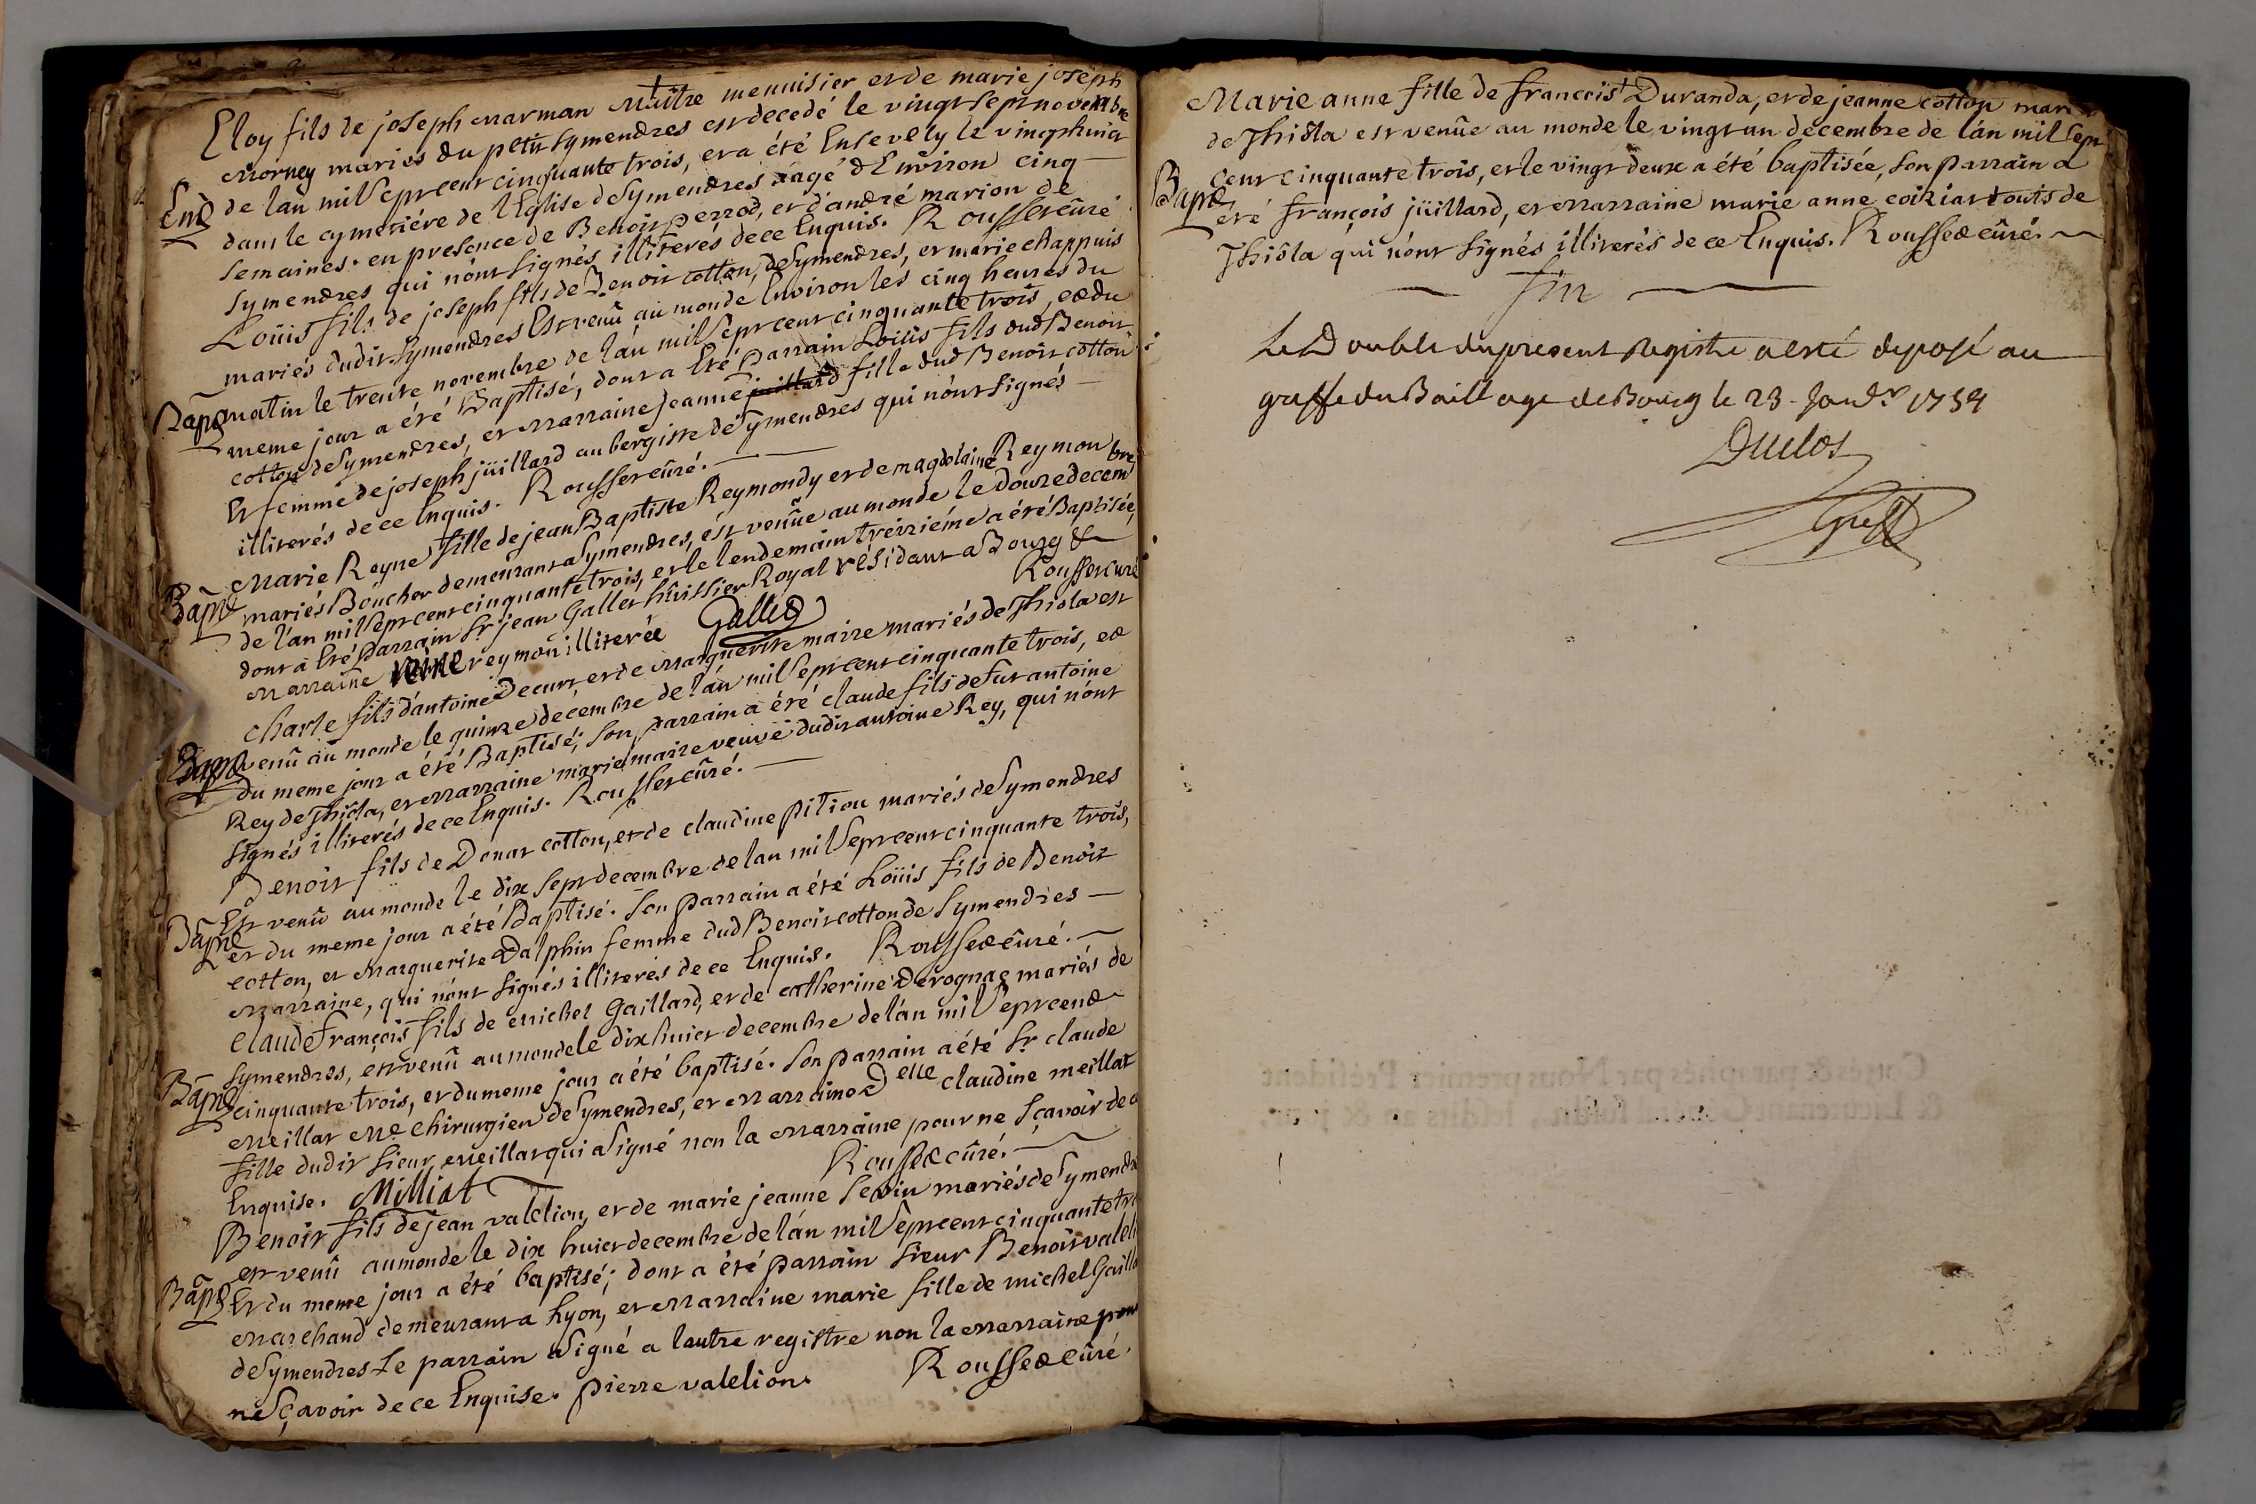 Eloy fils de joseph marman Maître menuisier et de marie joseph
Morney mariés du petit symendres est decedé le vingt sept novembre
End de lan mil sept cent cinquante trois, et a été Ensevely le vingthuit
dans le cymetiére de lEglise de symendres âgé dEnviron cinq
semaines. en presence de Benoit perrod, et d'andré marion de
symendres qui n'ont signés illiterés de ce Enquis. Rousset cûré
Loüis fils de joseph fils de Benoit cotton, de symendres, et marie chappuis
mariés dudit symendres Est venû au monde Environ les cinq heures du
Bapt matin le trente novembre de l'an mil sept cent cinquante trois, et du
meme jour a été Baptisé, dont a Eté parrain Loüis fils dud Benoit
cotton de symendres, et marraine jeanne juillard fille dud Benoit cotton
Et femme de joseph jüillard aubergiste de symendres qui n'ont signés
illiterés de ce Enquis. Rousset cûré.
Marie Reyne fille de jean Baptiste Reymondy et de magdelaine Reymon
mariés Boucher demeurant a symendres, est venüe au monde le douze decembre
Bapt de l'an mil sept cent cinquante trois, et le lendemain treizième a été Baptisée,
dont a Eté parrain sr jean Gallet huissier Royal résidant a Bourg &
marraine reine reymon illiterée Gallet Rousset curé
charle fils d'antoine Decurt et de marguerite maire mariés de Thiola est
Bapt venû au monde le quinze decembre de l'an mil sept cent cinquante trois, et
du meme jour a été Baptisé; son parrain a été claude fils de fut antoine
Rey de Thiola, et marraine marie maire veuve dudit antoine Rey, qui n'ont
signés illiterés de ce Enquis. Rousset cûré.
Benoit fils de Donat cotton, et de claudine pitiou mariés de symendres
Est venû au monde le dix sept decembre de lan mil sept cent cinquante trois,
Bapt et du meme jour a été Baptisé. son parrain a été Loüis fils de Benoit
cotton, et marguerite Dalphin femme dud Benoit cotton de symendres
marraine, qui n'ont signés illiterés de ce Enquis. Rousset cûré.
claude françois fils de michel Gaillard, et de catherine Derognat mariés de
symendres, est venû au monde le dix huict decembre de l'an mil sept cent
Bapt cinquante trois, et du meme jour a été baptisé. son parrain a été sr claude
meillat Me chirurgien de symendres, et marraine delle claudine meillat
fille dudit sieur meillat qui a signé non la marraine pour ne sçavoir de ce
Enquise. Milliat Rousset cûré.
Benoit fils de jean valelion, et de marie jeanne sevin mariés de symendres
est venû au monde le dix huict decembre de l'an mil sept cent cinquante trois
Bapt Et du meme jour a été baptisé; dont a été parrain sieur Benoit valelion
marchand demeurant a Lyon, et marraine marie fille de michel Gaillard
de symendres Le parrain a signé a lautre registre non la marraine pour
ne sçavoir de ce Enquise. pierre valelion. Rousset cûré.
Marie anne fille de françois Duranda, et de jeanne cotton mariés
de Thiola est venüe au monde le vingt un decembre de l'an mil sept
Bapt cent cinquante trois, et le vingt deux a été baptisée, son parrain a
été françois jüillard, et marraine marie anne coiziar touts de
Thiola qui n'ont signés illiterés de ce Enquis. Rousset cûré.
fin
Le Double du present Registre a esté deposé au
greffe du Baillage de Bourg le 23. Janvr 1754
Duclos
Greff